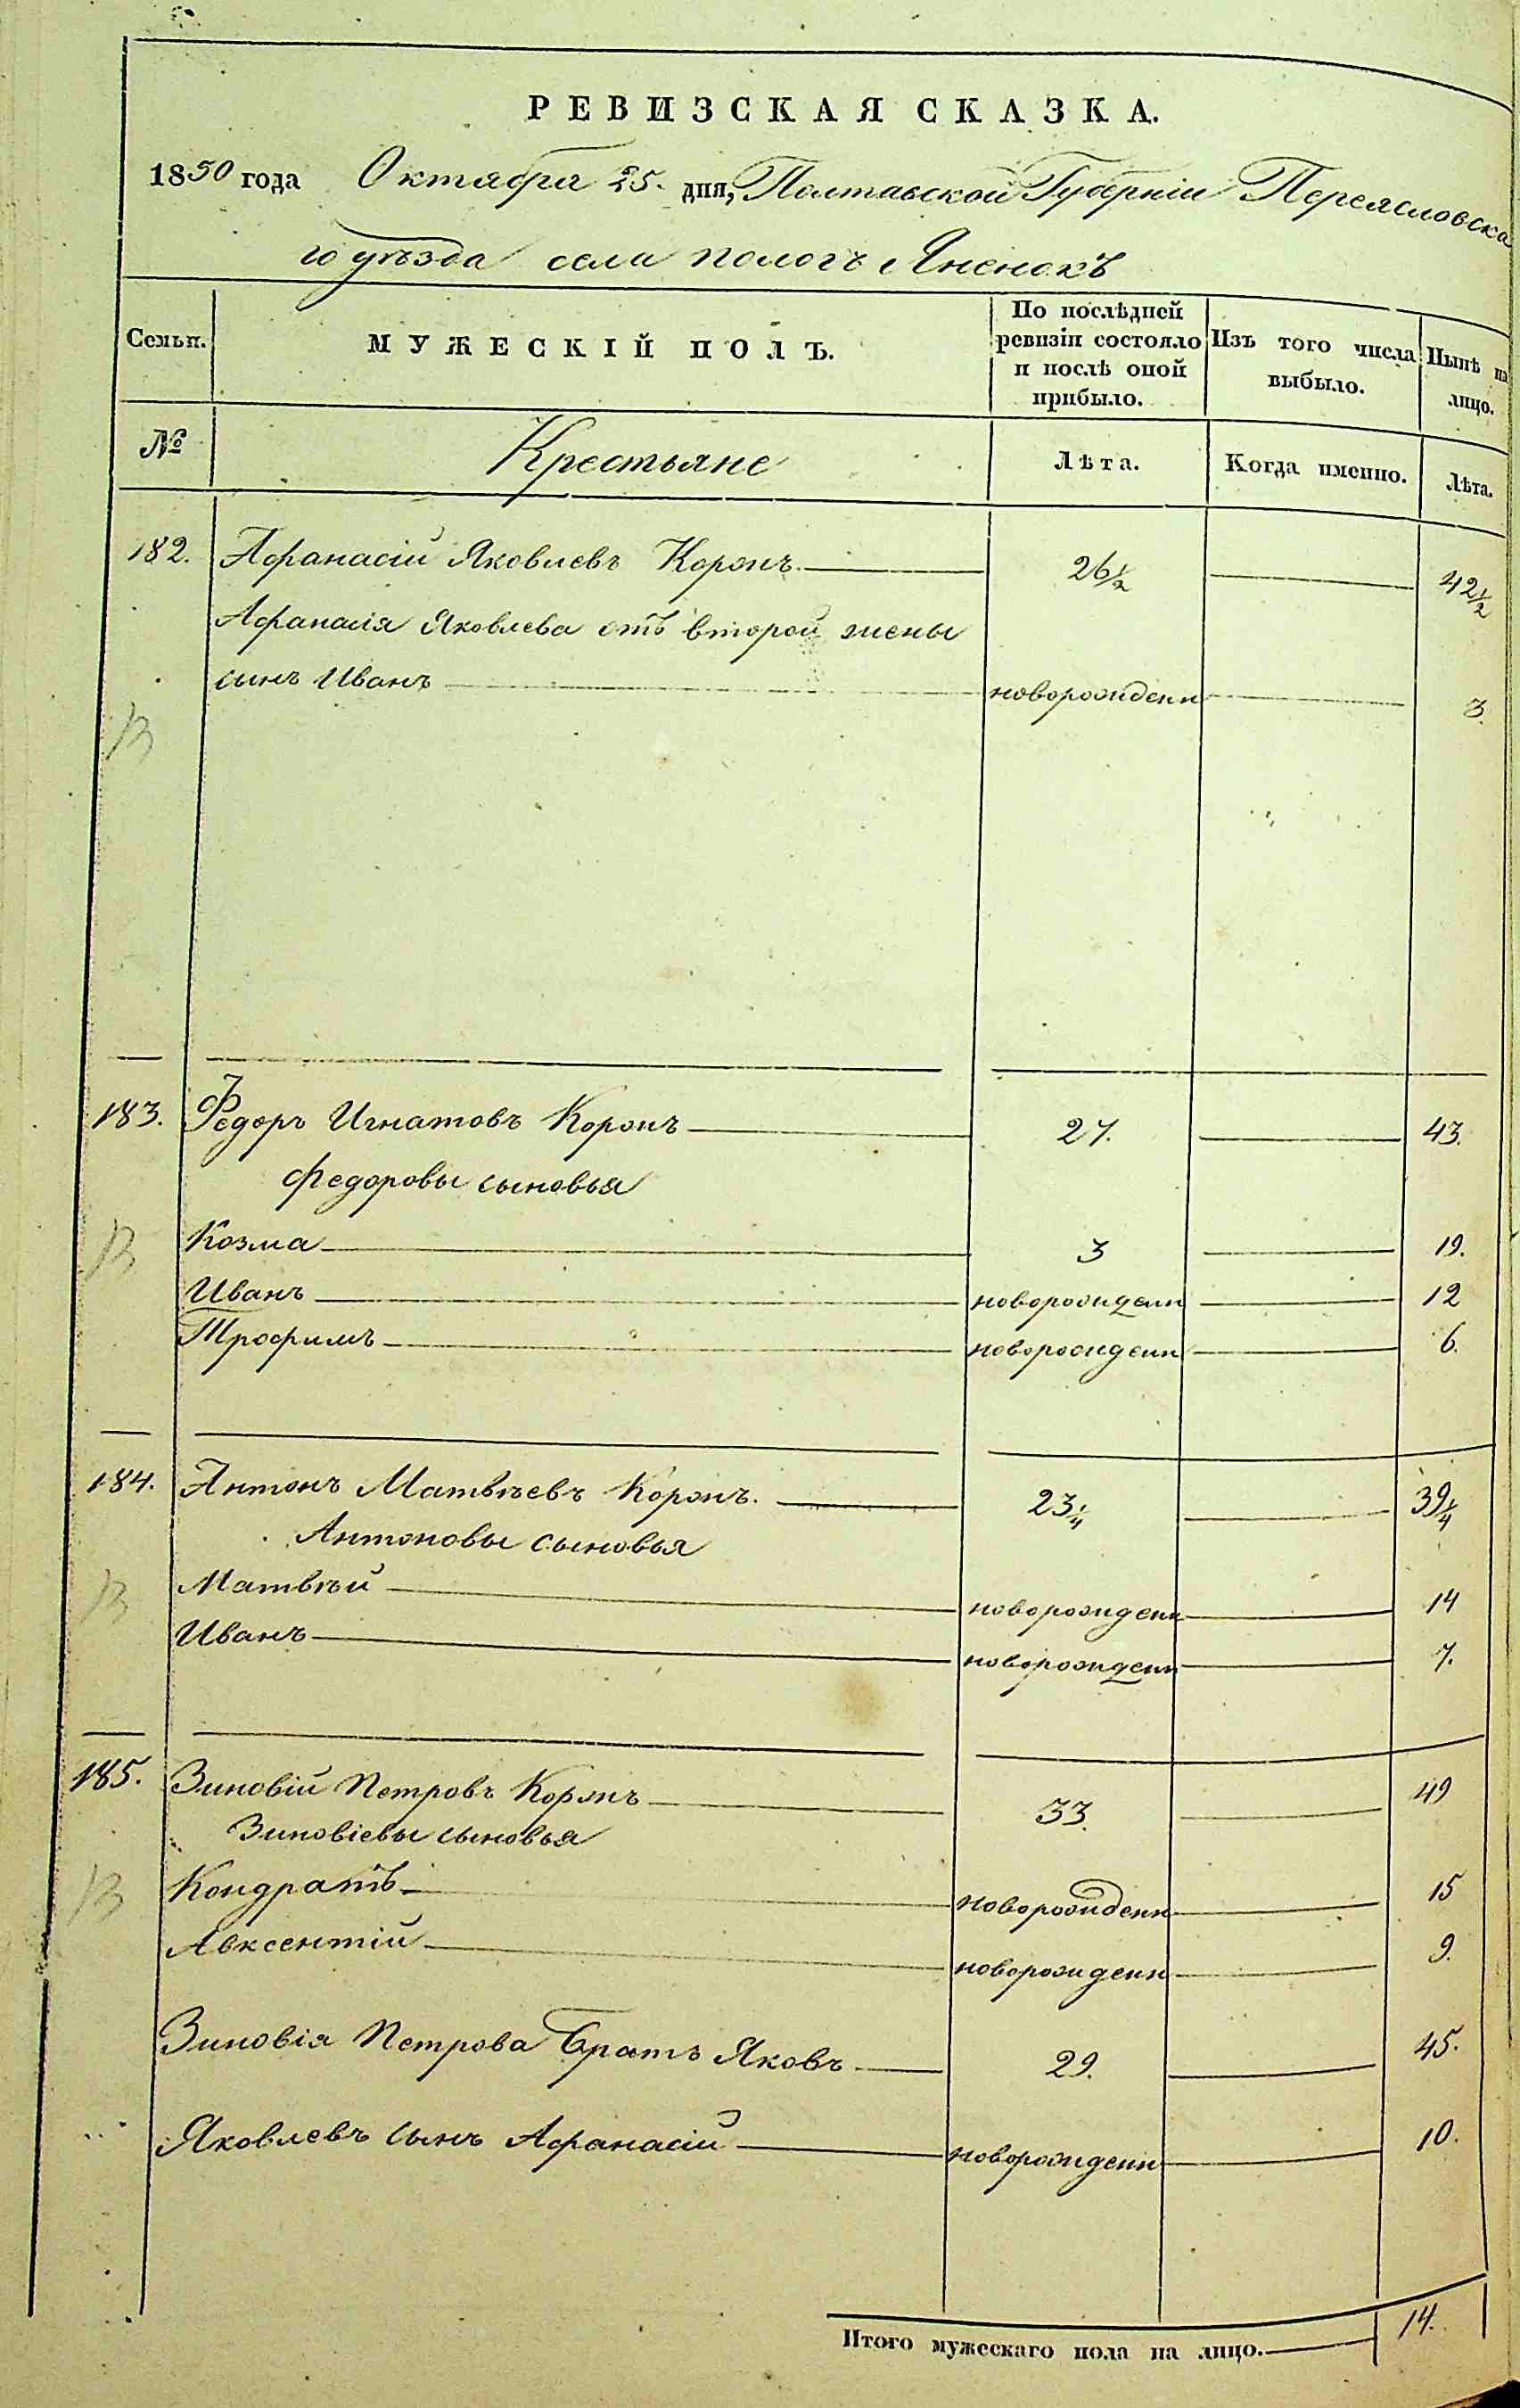 РЕВИЗСКАЯ СКАЗКА.
1850 года Октября 25. дня, Полтавской Губерніи Переясловска
го уѣзда села Пологъ Яненокъ
Семьи. МУЖЕСКІЙ ПОЛЪ. По послѣдней ревизіи состояло и послѣ оной прибыло. Изъ того числа выбыло. Нынѣ на лицо.
№ Крестьяне Лѣта. Когда именно. Лѣта.
182. Афанасій Яковлевъ Коронъ 26½ 42½
Афанасія Яковлева отъ второй жены
сынъ Иванъ новорожденн 3.
183. Федоръ Игнатовъ Коронъ 27. 43.
Федоровы сыновья
Козма 3 19.
Иванъ новорожденн 12
Трофимъ новорожденн 6.
184. Антонъ Матвѣевъ Коронъ. 23¼ 39¼
Антоновы сыновья
Матвѣй новорожденн 14
Иванъ новорожденн 7.
185. Зиновій Петровъ Коронъ 33. 49
Зиновіевы сыновья
Кондратъ новорожденн 15
Авксентій новорожденн 9.
Зиновія Петрова братъ Яковъ 29. 45.
Яковлевъ сынъ Афанасій новорожденн 10.
Итого мужескаго пола на лицо. 14.